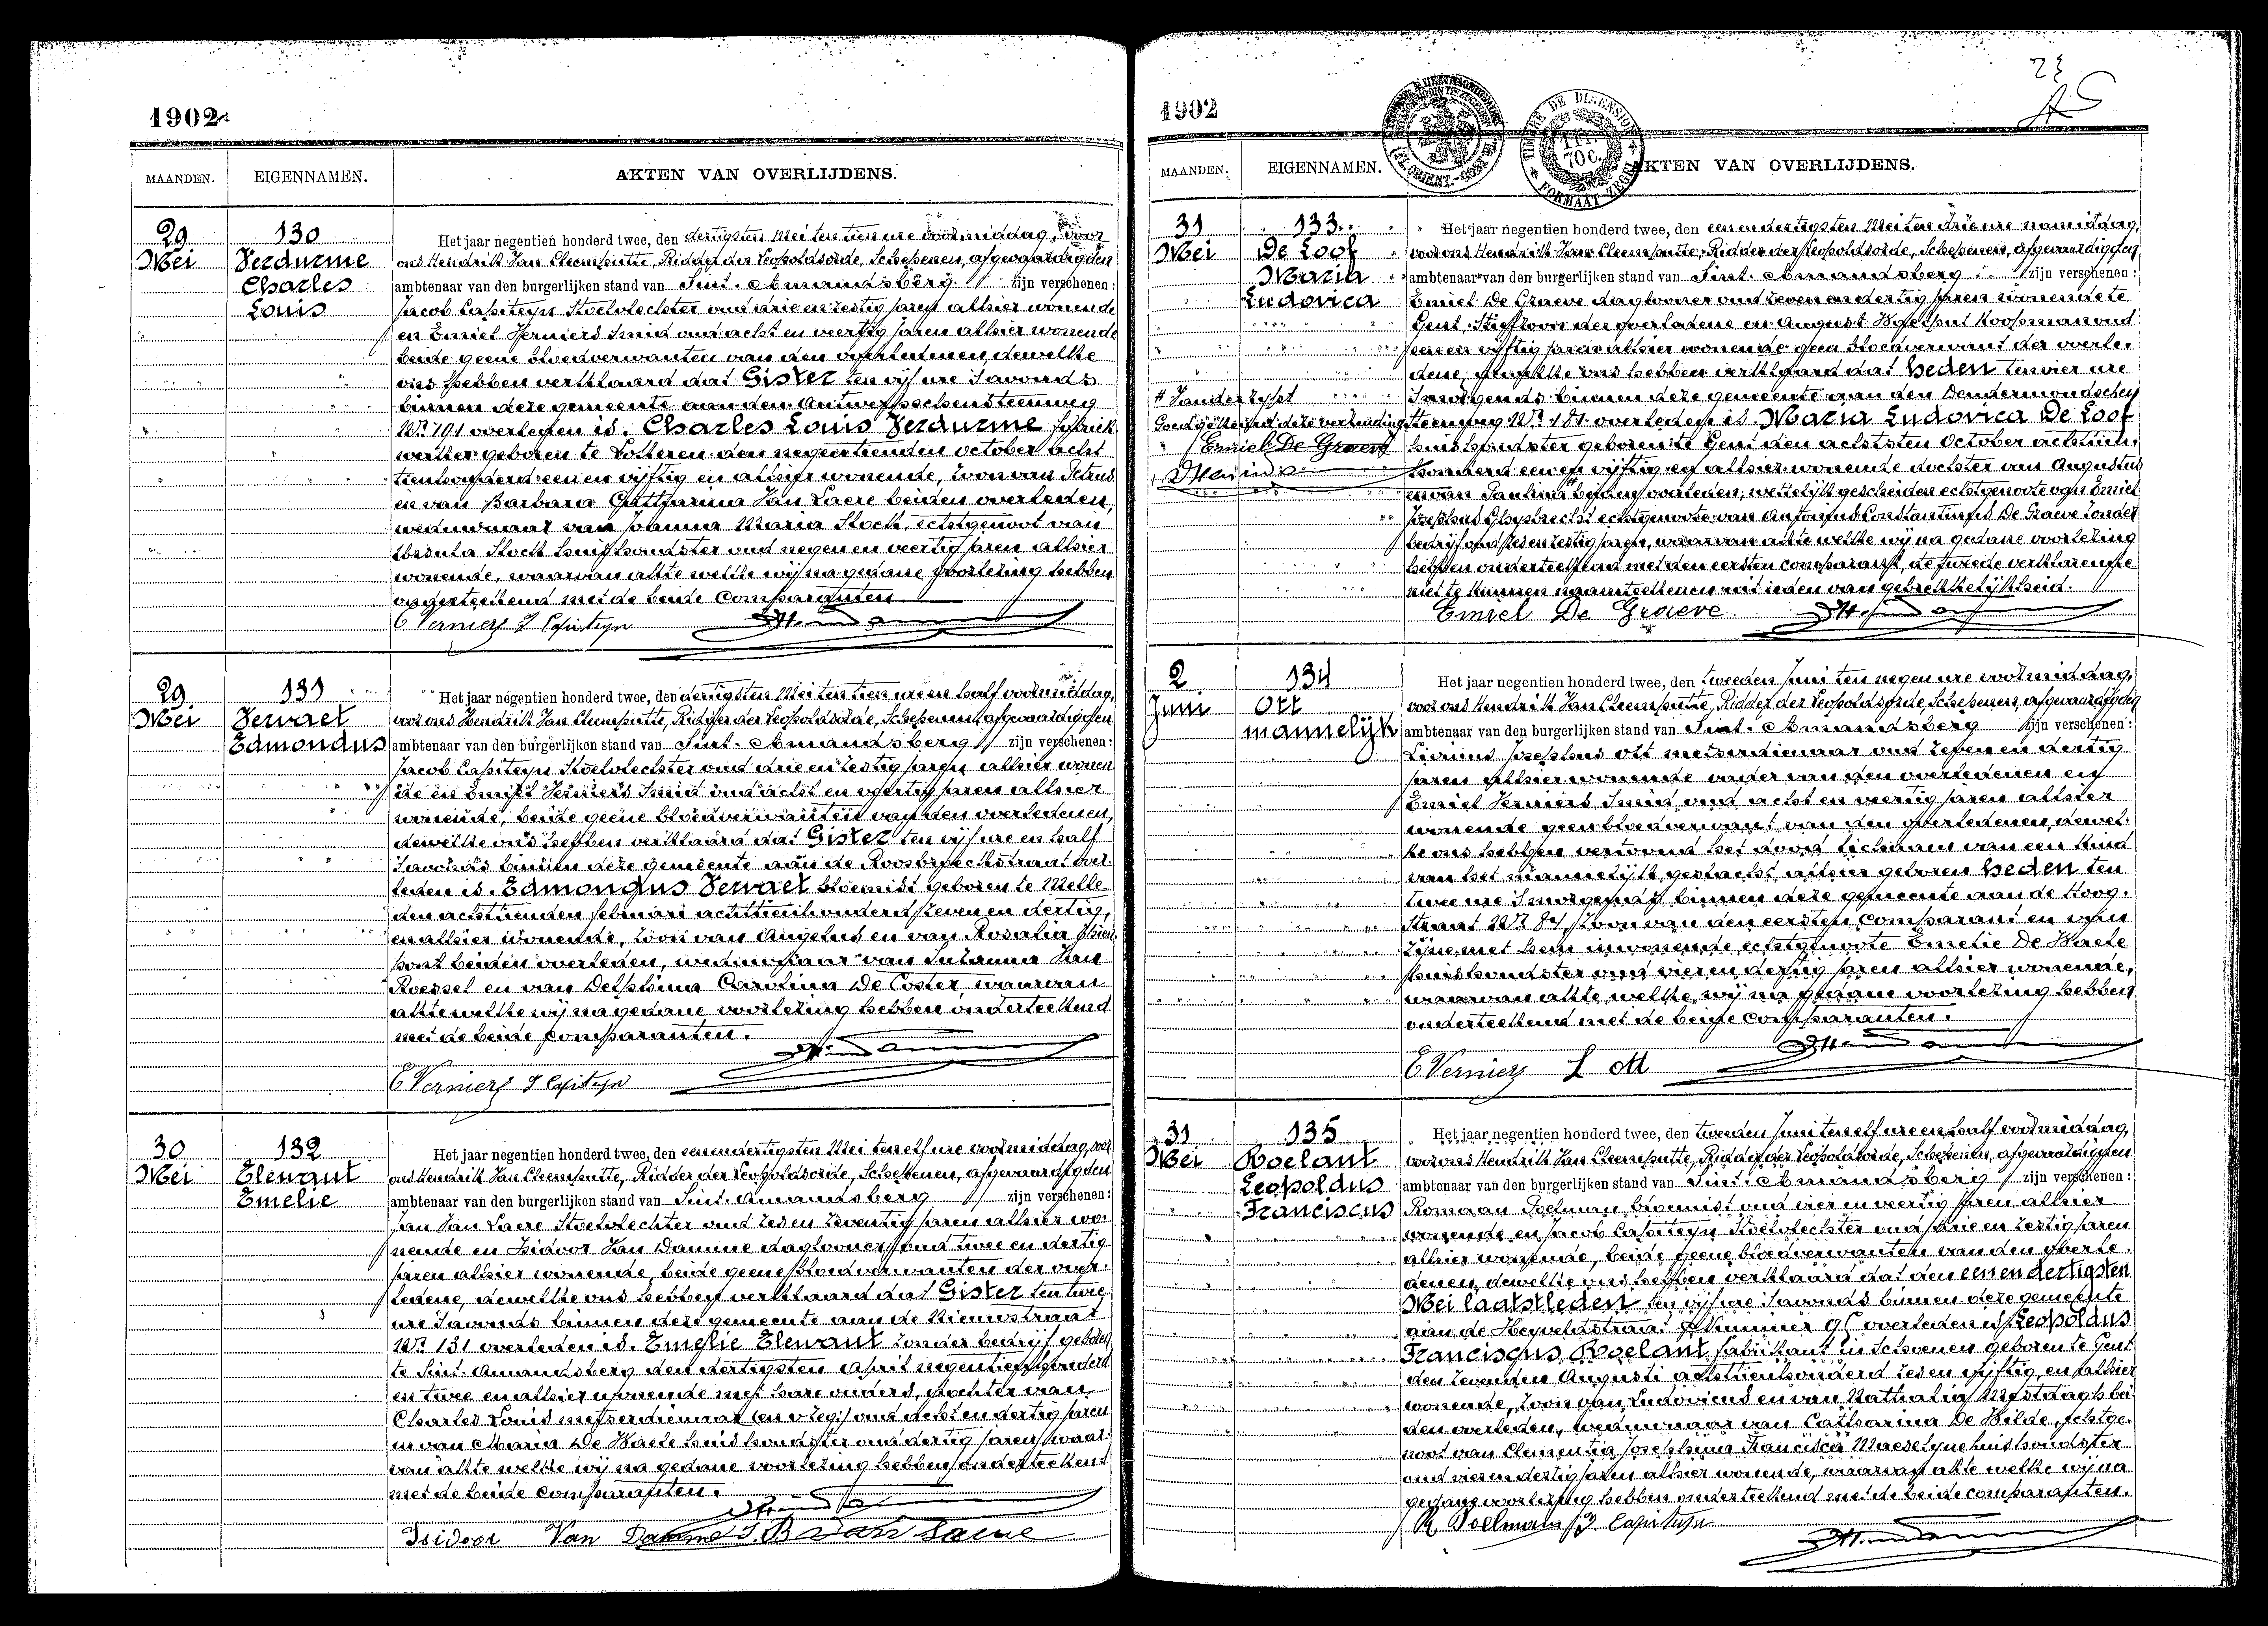 1902
MAANDEN. EIGENNAMEN. AKTEN VAN OVERLIJDENS.
29 130 Het jaar negentien honderd twee, den dertigsten Mei ten tien ure voormiddag, voor
Mei Verdurme ons Hendrik Jan Cleemputte, Ridder der Leopoldsorde, Schepenen, afgevaardigden
Charles ambtenaar van den burgerlijken stand van Sint. Amandsberg zijn verschenen:
Louis Jacob Capiteyn Stoelvlechter oud drie en zestig jaren alhier wonende
en Emiel Verniers Smid oud acht en veertig jaren alhier wonende
beide geene bloedverwanten van den overledenen, dewelke
ons hebben verklaard dat Gister ten vijf ure s'avonds
binnen deze gemeente aan den Antwerpschensteenweg
Nr. 191 overleden is. Charles Louis Verdurme fabriek
werker geboren te Lotteren den negentienden october acht
tienhonderd een en vijftig en alhier wonende, zoon van Petrus
en van Barbara Catharina Van Laere beiden overleden,
weduwnaar van Joanna Maria Stock, echtgenoot van
Ursula Stock huishoudster oud negen en veertig jaren alhier
wonende, waarvan akte welke wij na gedane voorlezing hebben
onderteekend met de beide comparanten
E Verniers J Capiteyn
29 131 Het jaar negentien honderd twee, den dertigsten Mei ten tien ure en half voormiddag,
Mei Servaet voor ons Hendrik Jan Cleemputte, Ridder der Leopoldsorde, Schepenen, afgevaardigden
Edmondus ambtenaar van den burgerlijken stand van Sint. Amandsberg zijn verschenen:
Jacob Capiteyn Stoelvlechter oud drie en zestig jaren alhier wonen
de en Emiel Verniers Smid oud acht en veertig jaren alhier
wonende, beide geene bloedverwanten van den overledenen,
dewelke ons hebben verklaard dat Gister ten vijf ure en half
s'avonds binnen deze gemeente aan de Roosbroekstraat over
leden is. Edmondus Servaet bloemist geboren te Melle
den achttienden februari achttienhonderd zeven en dertig,
en alhier wonende, zoon van Angelus en van Rosalia
beiden overleden, weduwnaar van Susanna Van
Roessel en van Delphina Carolina De Coster, waarvan
akte welke wij na gedane voorlezing hebben onderteekend
met de beide comparanten.
E Verniers J Capiteyn
30 132 Het jaar negentien honderd twee, den eenendertigsten Mei ten elf ure voormiddag, voor
Mei Elewaut ons Hendrik Jan Cleemputte, Ridder der Leopoldsorde, Schepenen, afgevaardigden
Emelie ambtenaar van den burgerlijken stand van Sint Amandsberg zijn verschenen:
Jan Van Laere Stoelvlechter oud zes en zeventig jaren alhier wo-
nende en Isidoor Van Damme daglooner oud twee en dertig
jaren alhier wonende, beide geene bloedverwanten der over-
ledene, dewelke ons hebben verklaard dat Gister ten twee
ure s'avonds binnen deze gemeente aan de Nieuwstraat
Nr. 131 overleden is. Emelie Elewaut zonder bedrijf geboren
te Sint. Amandsberg den dertigsten April negentienhonderd
en twee en alhier wonende met hare ouders, dochter van
Charles Louis metserdienaar oud acht en dertig jaren
en van Maria De Waele huishoudster oud dertig jaren, waar-
van akte welke wij na gedane voorlezing hebben onderteekend
met de beide comparanten.
Isidoor Van Damme J. B van Laere
1902
MAANDEN. EIGENNAMEN. AKTEN VAN OVERLIJDENS.
31 133 Het jaar negentien honderd twee, den een en dertigsten Mei ten drie ure namiddag,
Mei De Loof voor ons Hendrik Jan Cleemputte, Ridder der Leopoldsorde, Schepenen, afgevaardigden
Maria ambtenaar van den burgerlijken stand van Sint. Amandsberg zijn verschenen:
Ludovica Emiel De Graeve daglooner oud zeven en dertig jaren wonende te
Gent, Stiefzoon der overledene en August Koopman oud
en vijftig jaren alhier wonende geen bloedverwant der overle-
dene, dewelke ons hebben verklaard dat heden ten vier ure
s'morgends binnen deze gemeente aan den Dendermondschen
Goedgekeurd deze verzending steenweg Nr. 181 overleden is. Maria Ludovica De Loof
Emiel De Graeve huishoudster geboren te Gent den achtsten October achttien-
honderd een en vijftig en alhier wonende dochter van Augustus
en van Paulina beiden overleden, wettelijk gescheiden echtgenoote van Emiel
Josephus Ghysbrecht echtgenoote van Antonius Constantinus De Graeve zonder
bedrijf oud zes en zestig jaren, waarvan akte welke wij na gedane voorlezing
hebben onderteekend met den eersten comparant, de tweede verklarende
niet te kunnen naamteekenen uit reden van gebrekkelijkheid.
Emiel De Graeve
2 134 Het jaar negentien honderd twee, den tweeden Juni ten negen ure voormiddag,
Juni Ott voor ons Hendrik Jan Cleemputte, Ridder der Leopoldsorde, Schepenen, afgevaardigden
mannelijk ambtenaar van den burgerlijken stand van Sint. Amandsberg zijn verschenen:
Livinus Josephus Ott metserdienaar oud zeven en dertig
jaren alhier wonende vader van den overledenen en
Emiel Verniers Smid oud acht en veertig jaren alhier
wonende geen bloedverwant van den overledenen, dewel-
ke ons hebben vertoond het dood lichaam van een kind
van het mannelijk geslacht alhier geboren heden ten
twee ure s'morgends binnen deze gemeente aan de Hoog-
straat Nr. 84, zoon van den eersten comparant en van
zijne met hem inwonende echtgenoote Emelie De Waele
huishoudster oud vier en dertig jaren alhier wonende,
waarvan akte welke wij na gedane voorlezing hebben
onderteekend met de beide comparanten.
E Verniers L Ott
31 135 Het jaar negentien honderd twee, den tweeden Juni ten elf ure en half voormiddag,
Mei Roelant voor ons Hendrik Jan Cleemputte, Ridder der Leopoldsorde, Schepenen, afgevaardigden
Leopoldus ambtenaar van den burgerlijken stand van Sint. Amandsberg zijn verschenen:
Franciscus Romaan Poelman bloemist oud vier en veertig jaren alhier
wonende en Jacob Capiteyn Stoelvlechter oud drie en zestig jaren
alhier wonende, beide geene bloedverwanten van den overle-
denen, dewelke ons hebben verklaard dat den een en dertigsten
Mei laatstleden ten vijf ure s'avonds binnen deze gemeente
aan de Heyveldstraat Nummer overleden is Leopoldus
Franciscus Roelant fabrikant in Schoenen geboren te Gent
den zevenden Augusti achttienhonderd zes en vijftig, en alhier
wonende, zoon van Ludovicus en van Nathalia Mestdagh bei
den overleden, weduwnaar van Catharina De Wilde, echtge-
noot van Clementia Josephina Francisca Maeselyne huishoudster
oud vier en dertig jaren alhier wonende, waarvan akte welke wij na
gedane voorlezing hebben onderteekend met de beide comparanten.
R Poelman J Capiteyn